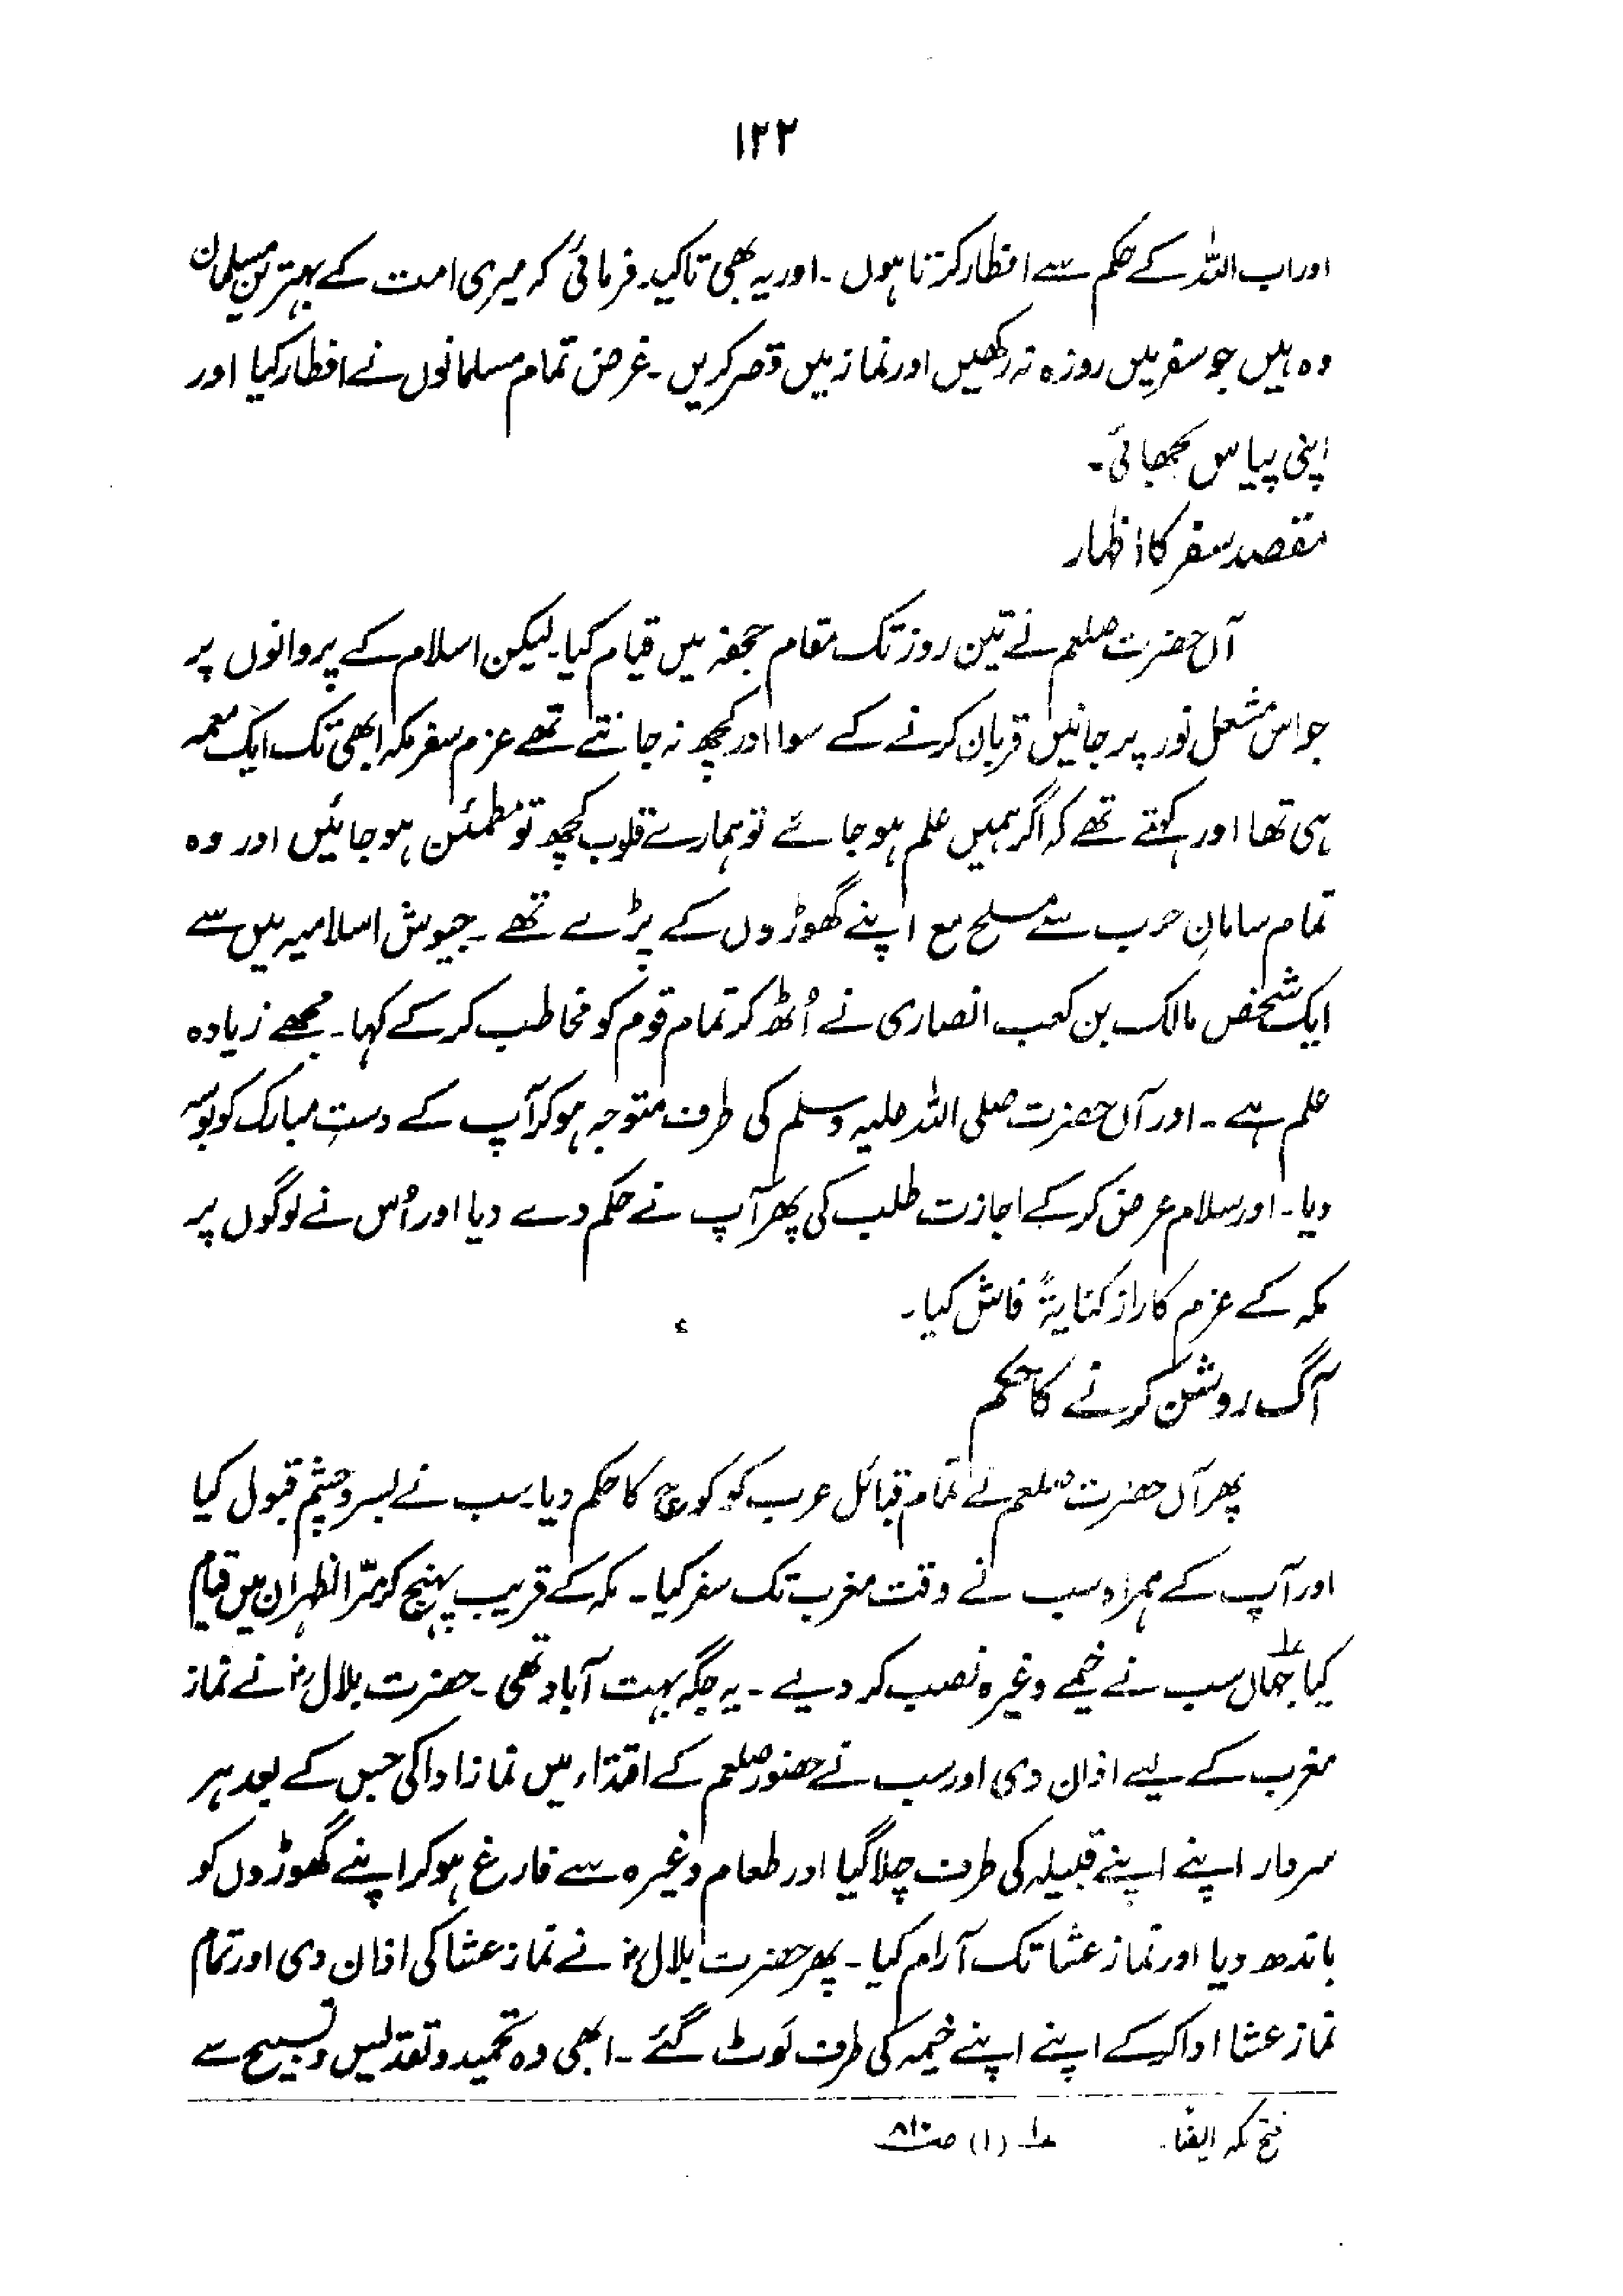 ۱۲۲
اور اب اللہ کے حکم سے افطار کرتا ہوں ۔ اور یہ بھی تاکید فرمائی کہ میری امت کے بہترین مسلمان
وہ ہیں جو سفر میں روزہ نہ رکھیں اور نماز میں قصر کریں ۔ غرض تمام مسلمانوں نے افطار کیا اور
اپنی پیاس بجھائی۔
مقصد سفر کا اظہار
آں حضرت صلعم نے تین روز تک مقام جحفہ میں قیام کیا۔ لیکن اسلام کے پروانوں پر
جو اس مشعل نور پر جانیں قربان کرنے کے سوا اور کچھ نہ جانتے تھے عزم سفر مکہ ابھی تک ایک معمہ
ہی تھا اور کہتے تھے کہ اگر ہمیں علم ہو جائے تو ہمارے قلوب کچھ تو مطمئن ہو جائیں اور وہ
تمام سامانِ حرب سے مسلح مع اپنے گھوڑوں کے پڑے تھے ۔ جیوش اسلامیہ میں سے
ایک شخص مالک بن کعب انصاری نے اُٹھ کر تمام قوم کو مخاطب کر کے کہا۔ مجھے زیادہ
علم ہے ۔ اور آں حضرت صلی اللہ علیہ وسلم کی طرف متوجہ ہو کر آپ کے دستِ مبارک کو بوسہ
دیا۔ اور سلام عرض کر کے اجازت طلب کی پھر آپ نے حکم دے دیا اور اُس نے لوگوں پر
مکہ کے عزم کا راز کنایۃً فاش کیا۔
آگ روشن کرنے کا حکم
پھر آں حضرت صلعم نے تمام قبائل عرب کو کوچ کا حکم دیا۔ سب نے بسر و چشم قبول کیا
اور آپ کے ہمراہ سب نے وقت مغرب تک سفر کیا ۔ مکہ کے قریب پہنچ کر مرّ الظہران میں قیام
کیا؂۱ جہاں سب نے خیمے وغیرہ نصب کر دیے ۔ یہ جگہ بہت آباد تھی ۔ حضرت بلالؓ نے نماز
مغرب کے لیے اذان دی اور سب نے حضور صلعم کے اقتداء میں نماز ادا کی جس کے بعد ہر
سردار اپنے اپنے قبیلہ کی طرف چلا گیا اور طعام وغیرہ سے فارغ ہو کر اپنے گھوڑوں کو
باندھ دیا اور نماز عشا تک آرام کیا ۔ پھر حضرت بلالؓ نے نماز عشا کی اذان دی اور تمام
نماز عشا ادا کر کے اپنے اپنے خیمہ کی طرف لوٹ گئے ۔ ابھی وہ تحمید و تقدیس و تسبیح سے
فتح مکہ ایضاً۔ ؂۱ (۱) ص۸۱۰